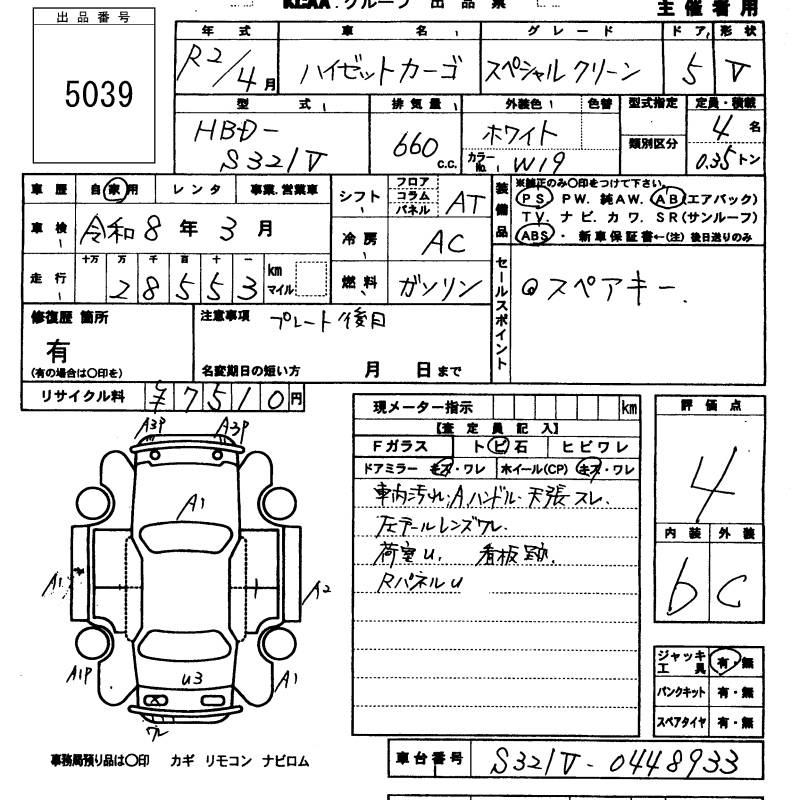 KLAA.グループ 出品票
主催者用
出品番号
5039
年式 車名 グレード ドア 形状
R2/4月 ハイゼットカーゴ スペシャルクリーン 5 V
型式 排気量 外装色 色替 型式指定 定員・積載
HBD-
S321V
660 c.c.
ホワイト
カラーNo. W19
類別区分
4名
0.35トン
車歴 自家用 レンタ 事業.営業車
車検 令和8年3月
走行 十万 万 千 百 十 一
28553 km
マイル
シフト フロア コラム パネル AT
冷房 AC
燃料 ガソリン
装備品
※純正のみ○印をつけて下さい。
PS PW. 純AW. AB(エアバック)
TV. ナビ. カワ. SR(サンルーフ)
ABS・新車保証書←(注) 後日送りのみ
セールスポイント
スペアキー.
修復歴 箇所
有
(有の場合は○印を)
注意事項
プレート後日
名変期日の短い方 月 日まで
リサイクル料 ¥7510円
現メーター指示 km
【査定員記入】
Fガラス トビ石 ヒビワレ
ドアミラー キズ・ワレ ホイール(CP) キズ・ワレ
車内汚れ.A,ハンドル.天張スレ.
左テールレンズワレ.
荷室U. 看板跡.
RパネルU
評価点
4
内装 外装
b C
ジャッキ工具 有・無
パンクキット 有・無
スペアタイヤ 有・無
A3P A3P
A1
A1 A2
A1P U3 A1
ワレ
事務局預り品は○印 カギ リモコン ナビロム
車台番号 S321V-0448933